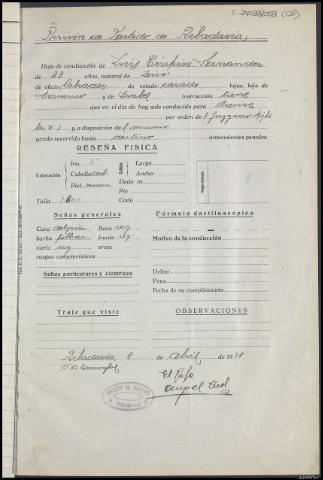 Prisión de Partido de Ribadavia
Hoja de conducción de Luis Crespiño Fernandez
de 33 años, natural de
de oficio labrador de estado casado hijos, hijo de
Francisco y de Isabel instrucción tiene
que en el día de hoy sale conducido para Orense
por orden de l Juzgado Mili
tar y a disposición de l mismo
yendo socorrido hasta destino antecedentes penales.
RESEÑA FISICA
Coloración
Iris
Cabello cast
Piel morena
Talla 1,60
Largo
Ancho
Dedo m
Pie
Codo
Señas generales
Fórmula dactiloscópica
Cara Boca reg
barba poblada frente reg
nariz reg oreja
rasgos característicos
Motivo de la conducción
Señas particulares y cicatrices
Delito
Pena
Fecha de su cumplimiento
Traje que viste
OBSERVACIONES
Ribadavia 8 de Abril de 1938
El Jefe
PRISIÓN DE PARTIDO
RIBADAVIA